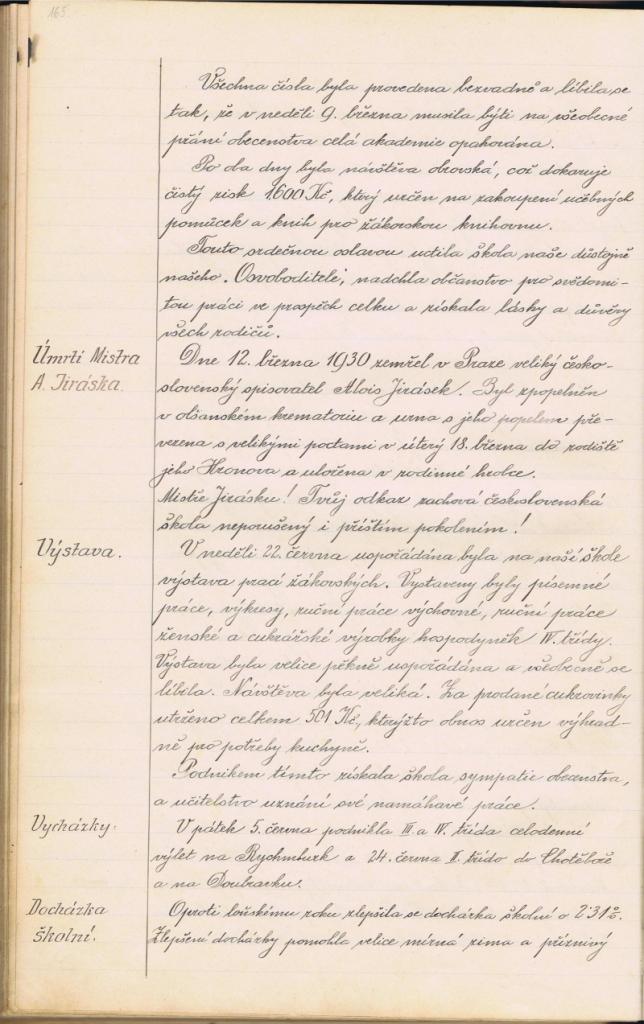 165.
Všechna čísla byla provedena bezvadně a líbila se
tak, že v neděli 9. března musila býti na všeobecné
přání obecenstva celá akademie opakována.
Po oba dny byla návštěva obrovská, což dokazuje
čistý zisk 1.600 Kč, který určen na zakoupení učebných
pomůcek a knih pro žákovskou knihovnu.
Touto srdečnou oslavou uctila škola naše důstojně
našeho "Osvoboditele", nadchla občanstvo pro svědomi-
tou práci ve prospěch celku a získala lásky a důvěry
všech rodičů.
Úmrtí Mistra
A. Jiráska.
Dne 12. března 1930 zemřel v Praze veliký česko-
slovenský spisovatel Alois Jirásek. Byl zpopelněn
v olšanském krematoriu a urna s jeho popelem pře-
vezena s velikými poctami v úterý 18. března do rodiště
jeho Hronova a uložena v rodinné hrobce.
Mistře Jirásku! Tvůj odkaz zachová československá
škola neporušený i příštím pokolením!
Výstava.
V neděli 22. června uspořádána byla na naší škole
výstava prací žákovských. Vystaveny byly písemné
práce, výkresy, ruční práce výchovné, ruční práce
ženské a cukrářské výrobky hospodyněk IV. třídy.
Výstava byla velice pěkně uspořádána a všeobecně se
líbila. Návštěva byla veliká. Za prodané cukrovinky
utrženo celkem 501 Kč, kterýžto obnos určen výhrad-
ně pro potřeby kuchyně.
Podnikem tímto získala škola sympatie obecenstva,
a učitelstvo uznání své namáhavé práce.
Vycházky.
V pátek 5. června podnikla III. a IV. třída celodenní
výlet na Rychmburk a 24. června II. třída do Chotěboře
a na Doubravku.
Docházka
školní.
Oproti loňskému roku zlepšila se docházka školní o 2·31%.
Zlepšení docházky pomohla velice mírná zima a příznivý